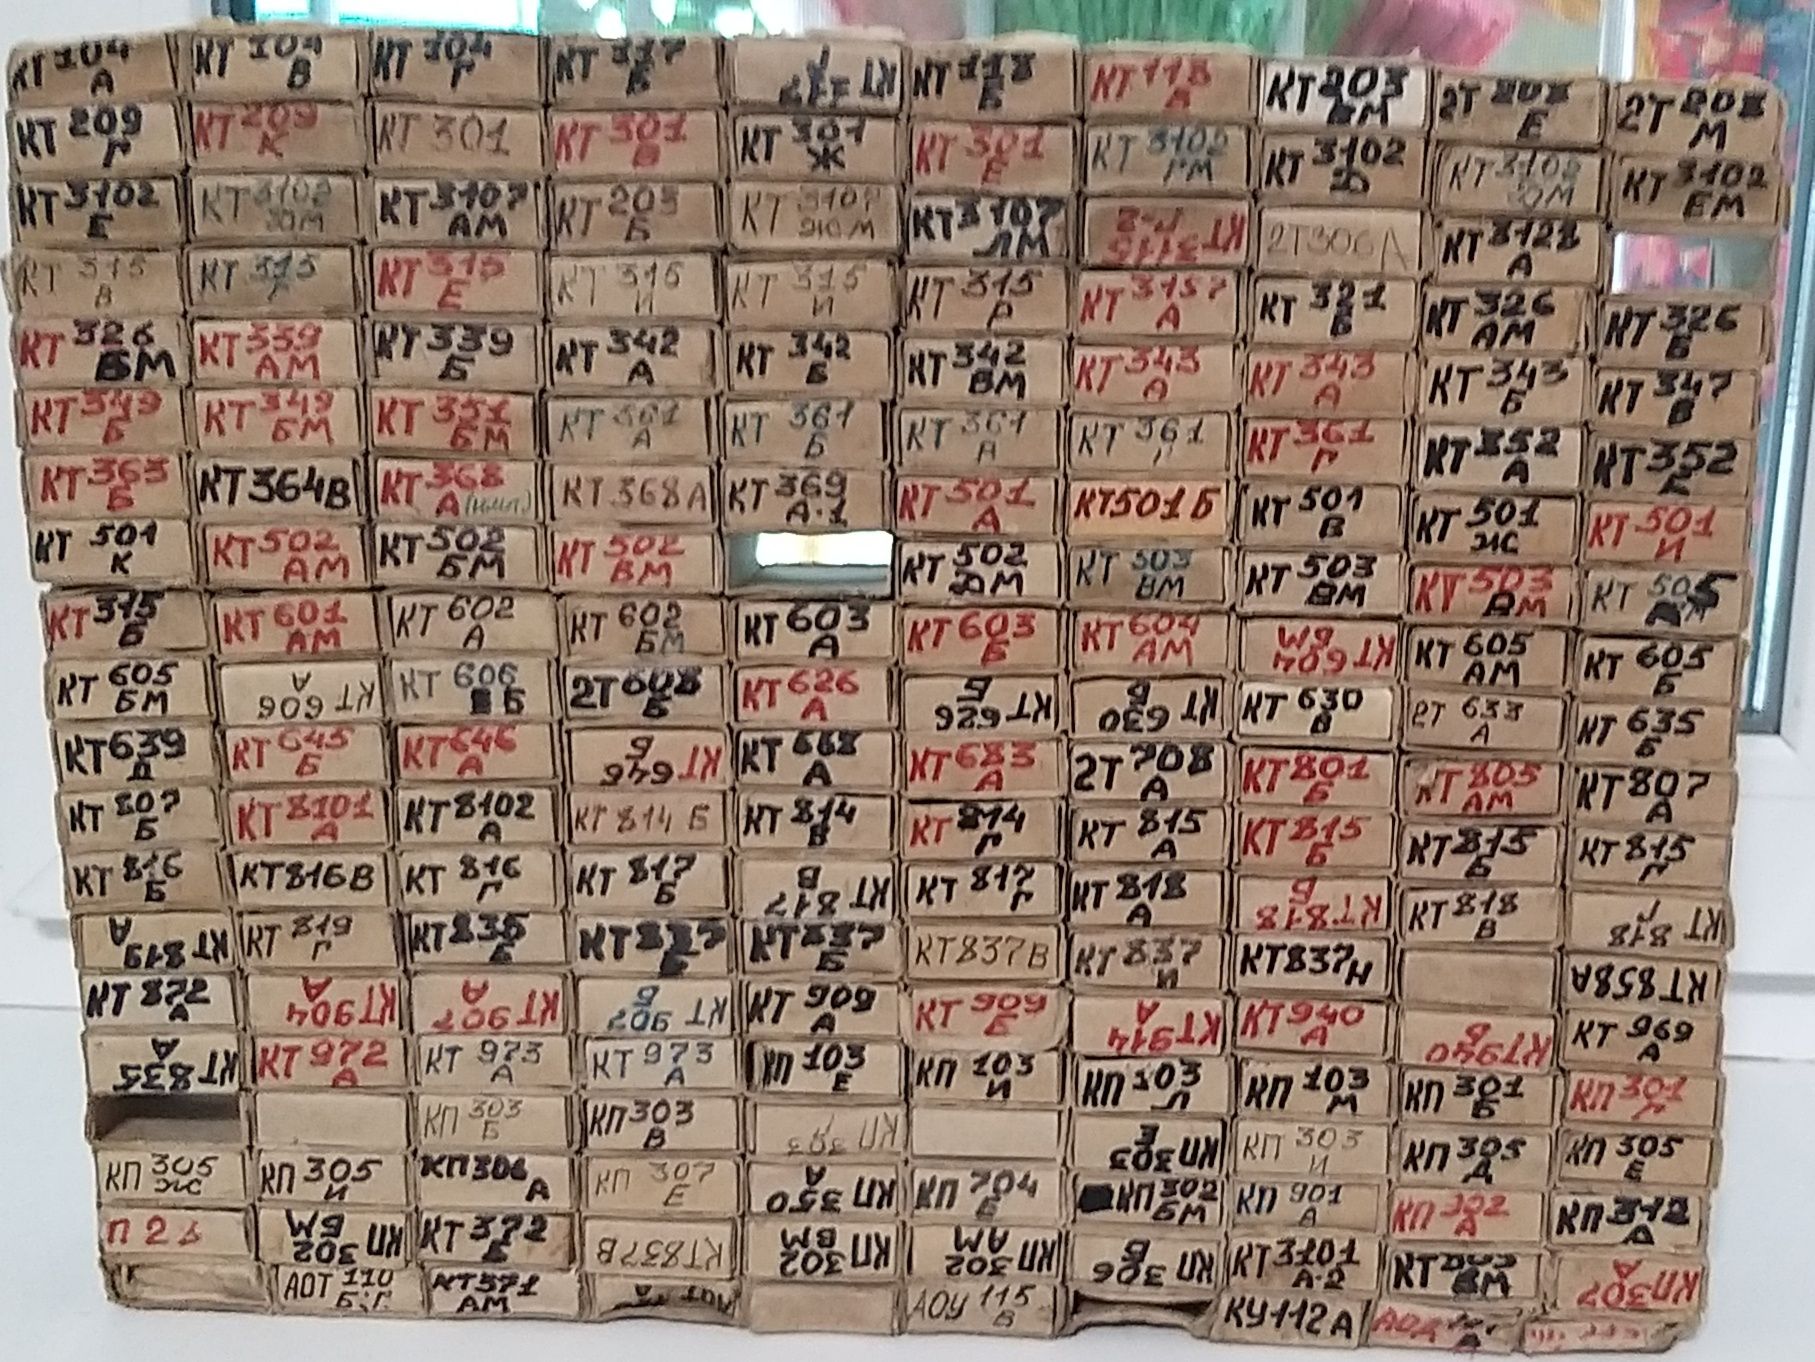 КТ 104 А
КТ 104 В
КТ 104 Г
КТ 117 Б
КТ 117 Г
КТ 118 Б
КТ 118 В
КТ 203 ВМ
2Т 203 Е
2Т 208 М
КТ 209 Г
КТ 209 К
КТ 301
КТ 301 В
КТ 301 Ж
КТ 301 Е
КТ 3102 ГМ
КТ 3102 Д
КТ 3102 ДМ
КТ 3102 ЕМ
КТ 3102 Е
КТ 3102 ЮМ
КТ 3107 АМ
КТ 203 Б
КТ 3107 ЖМ
КТ 3107 ЛМ
КТ 3115 Г-2
2Т306А
КТ 3128 А
КТ 315 В
КТ 315 Г
КТ 315 Е
КТ 315 И
КТ 315 И
КТ 315 Р
КТ 3157 А
КТ 321 Б
КТ 326 АМ
КТ 326 Б
КТ 326 БМ
КТ 339 АМ
КТ 339 Б
КТ 342 А
КТ 342 Б
КТ 342 ВМ
КТ 343 А
КТ 343 А
КТ 343 Б
КТ 347 В
КТ 349 Б
КТ 349 БМ
КТ 351 БМ
КТ 361 А
КТ 361 Б
КТ 361 А
КТ 361 Г
КТ 361 Г
КТ 352 А
КТ 352 Е
КТ 363 Б
КТ364В
КТ 368 А
КТ 368 А
КТ 369 А-1
КТ 501 А
КТ501Б
КТ 501 В
КТ 501 Ж
КТ 501 И
КТ 501 К
КТ 502 АМ
КТ 502 БМ
КТ 502 ВМ
КТ 502 ДМ
КТ 503 ВМ
КТ 503 ВМ
КТ 503 ДМ
КТ 505 АМ
КТ 315 Б
КТ 601 АМ
КТ 602 А
КТ 602 БМ
КТ 603 А
КТ 603 Б
КТ 604 АМ
КТ 604 БМ
КТ 605 АМ
КТ 605 Б
КТ 605 БМ
КТ 606 А
КТ 606 Б
2Т 608 Б
КТ 626 А
КТ 626 Б
КТ 630 Б
КТ 630 В
2Т 633 А
КТ 635 Б
КТ 639 Д
КТ 645 Б
КТ 646 А
КТ 646 Б
КТ 668 А
КТ 683 А
2Т 708 А
КТ 801 Б
КТ 805 АМ
КТ 807 А
КТ 807 Б
КТ 8101 А
КТ 8102 А
КТ 814 Б
КТ 814 В
КТ 814 Г
КТ 815 А
КТ 815 Б
КТ 815 Б
КТ 815 Г
КТ 816 Б
КТ816В
КТ 816 Г
КТ 817 Б
КТ 817 В
КТ 817 Г
КТ 818 А
КТ 818 Б
КТ 818 В
КТ 818 Г
КТ 819 А
КТ 819 Г
КТ 835 Б
КТ 837 Б
КТ 837 Б
КТ837В
КТ 837 И
КТ837Н
КТ858А
КТ 872 А
КТ 904 А
КТ 907 А
КТ 907 Б
КТ 909 А
КТ 909 Б
КТ 914 А
КТ 940 А
КТ 940 Б
КТ 969 А
КТ 835 А
КТ 972 А
КТ 973 А
КТ 973 А
КП 103 Е
КП 103 И
КП 103 Л
КП 103 М
КП 301 Б
КП 301 Г
КП 303 Б
КП 303 В
КП 303 Г
КП 303 Е
КП 303 И
КП 305 Д
КП 305 Е
КП 305 Ж
КП 305 И
КП 306 А
КП 307 Е
КП 350 А
КП 704 Б
КП 302 БМ
КП 901 А
КП 302 А
КП 312 А
П 27
КП 302 БМ
КТ 372 Б
КТ837В
КП 302 ВМ
КП 302 АМ
КП 306 Б
КТ 3101 А-2
КП 307 А
АОТ 110 Б,Г
КТ371 АМ
АОУ 115 В
КУ112А